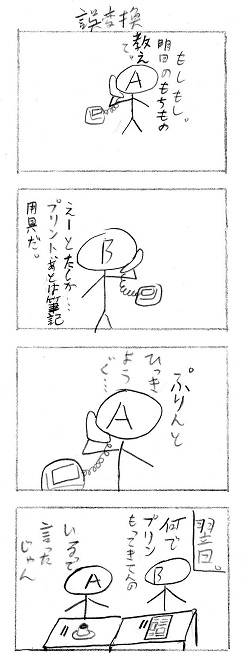 誤変換
もしもし。
明日のもちもの
教え
て。
A
B
えーとたしか…
プリントあとは筆記
用具だ。
ぷりんと
ひっき
よう
ぐ…
A
翌日。
何で
プリン
もってきてんの
B
いるって
言った
じゃん
A